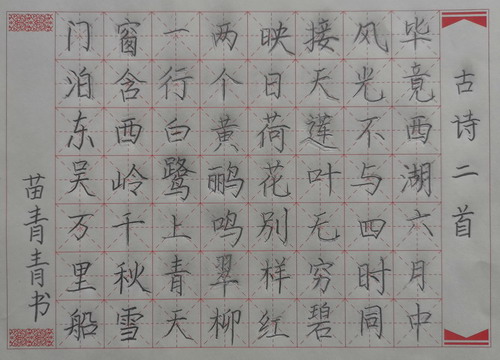 古诗二首
毕竟西湖六月中
风光不与四时同
接天莲叶无穷碧
映日荷花别样红
两个黄鹂鸣翠柳
一行白鹭上青天
窗含西岭千秋雪
门泊东吴万里船
苗青青书